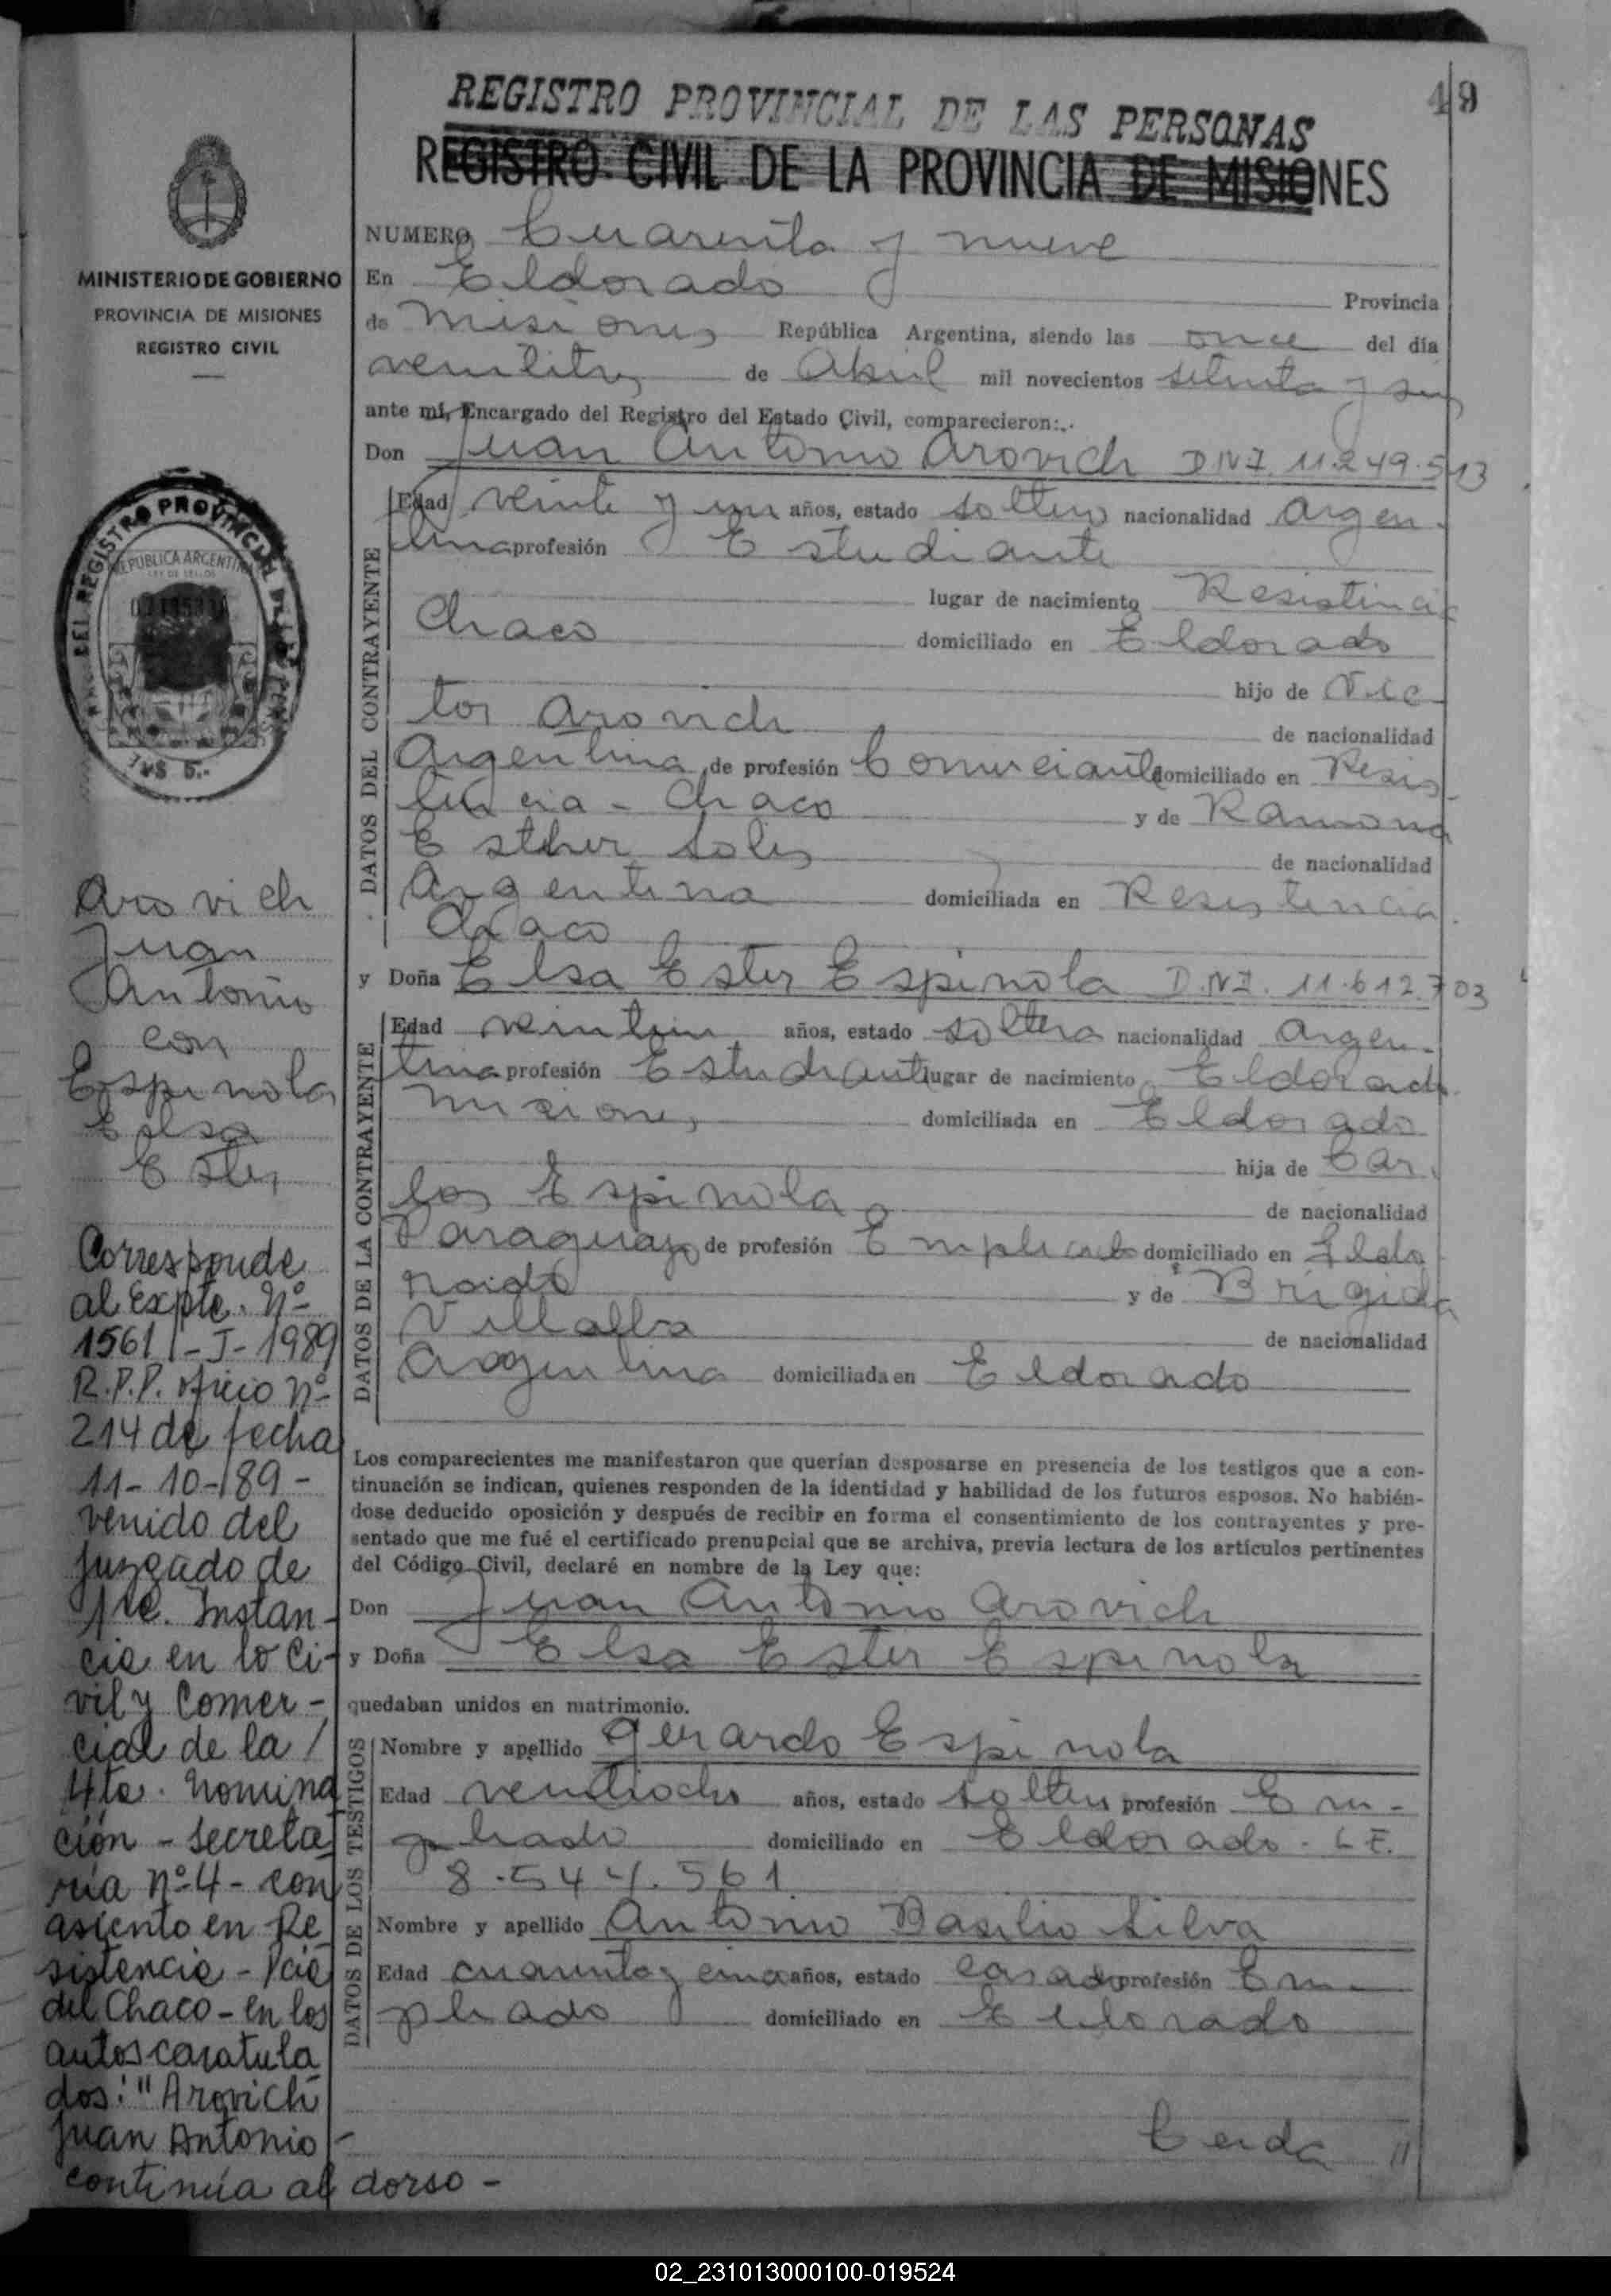 49
REGISTRO PROVINCIAL DE LAS PERSONAS
REGISTRO CIVIL DE LA PROVINCIA DE MISIONES
MINISTERIO DE GOBIERNO
PROVINCIA DE MISIONES
REGISTRO CIVIL
NUMERO Cuarenta y nueve
En Eldorado Provincia
de Misiones República Argentina, siendo las once del día
veintitres de Abril mil novecientos setenta y seis
ante mí, Encargado del Registro del Estado Civil, comparecieron:
Don Juan Antonio Arovich D.N.I. 11.249.513
DATOS DEL CONTRAYENTE
Edad veinte y un años, estado soltero nacionalidad Argen-
tina profesión Estudiante
lugar de nacimiento Resistencia
Chaco domiciliado en Eldorado
hijo de Vic
tor Arovich de nacionalidad
Argentina de profesión Comerciante domiciliado en Resis-
tencia - Chaco y de Ramona
Esther Solis de nacionalidad
Argentina domiciliada en Resistencia.
Chaco
y Doña Elsa Ester Espinola D.N.I. 11.612.703
DATOS DE LA CONTRAYENTE
Edad veintiun años, estado soltera nacionalidad Argen-
tina profesión Estudiante lugar de nacimiento Eldorado
Misiones domiciliada en Eldorado
hija de Car
los Espinola de nacionalidad
Paraguayo de profesión Empleado domiciliado en Eldo
rado y de Brigida
Villalba de nacionalidad
Argentina domiciliada en Eldorado
Los comparecientes me manifestaron que querían desposarse en presencia de los testigos que a con-
tinuación se indican, quienes responden de la identidad y habilidad de los futuros esposos. No habién-
dose deducido oposición y después de recibir en forma el consentimiento de los contrayentes y pre-
sentado que me fué el certificado prenupcial que se archiva, previa lectura de los artículos pertinentes
del Código Civil, declaré en nombre de la Ley que:
Don Juan Antonio Arovich
y Doña Elsa Ester Espinola
quedaban unidos en matrimonio.
DATOS DE LOS TESTIGOS
Nombre y apellido Gerardo Espinola
Edad veintiocho años, estado soltero profesión Em-
pleado domiciliado en Eldorado - L.E.
8.544.561
Nombre y apellido Antonio Basilio Silva
Edad cuarenta y cinco años, estado casado profesión Em-
pleado domiciliado en Eldorado
//
REPUBLICA ARGENTINA
LEY DE SELLOS
DEL REGISTRO PROVINCIAL DE LAS PERS
$ 5.-
Arovich
Juan
Antonio
con
Espinola
Elsa
Ester
Corresponde
al Expte. Nº
1561 - J - 1989
R.P.P. oficio nº
214 de fecha
11-10-89-
venido del
Juzgado de
1ra. Instan-
cia en lo Ci-
vil y Comer-
cial de la /
4ta. Nomina
ción - Secreta
ría nº 4 - con
asiento en Re
sistencia - Pcia
del Chaco - en los
autos caratula
dos: "Arovich
Juan Antonio -
continúa al dorso -
02_231013000100-019524